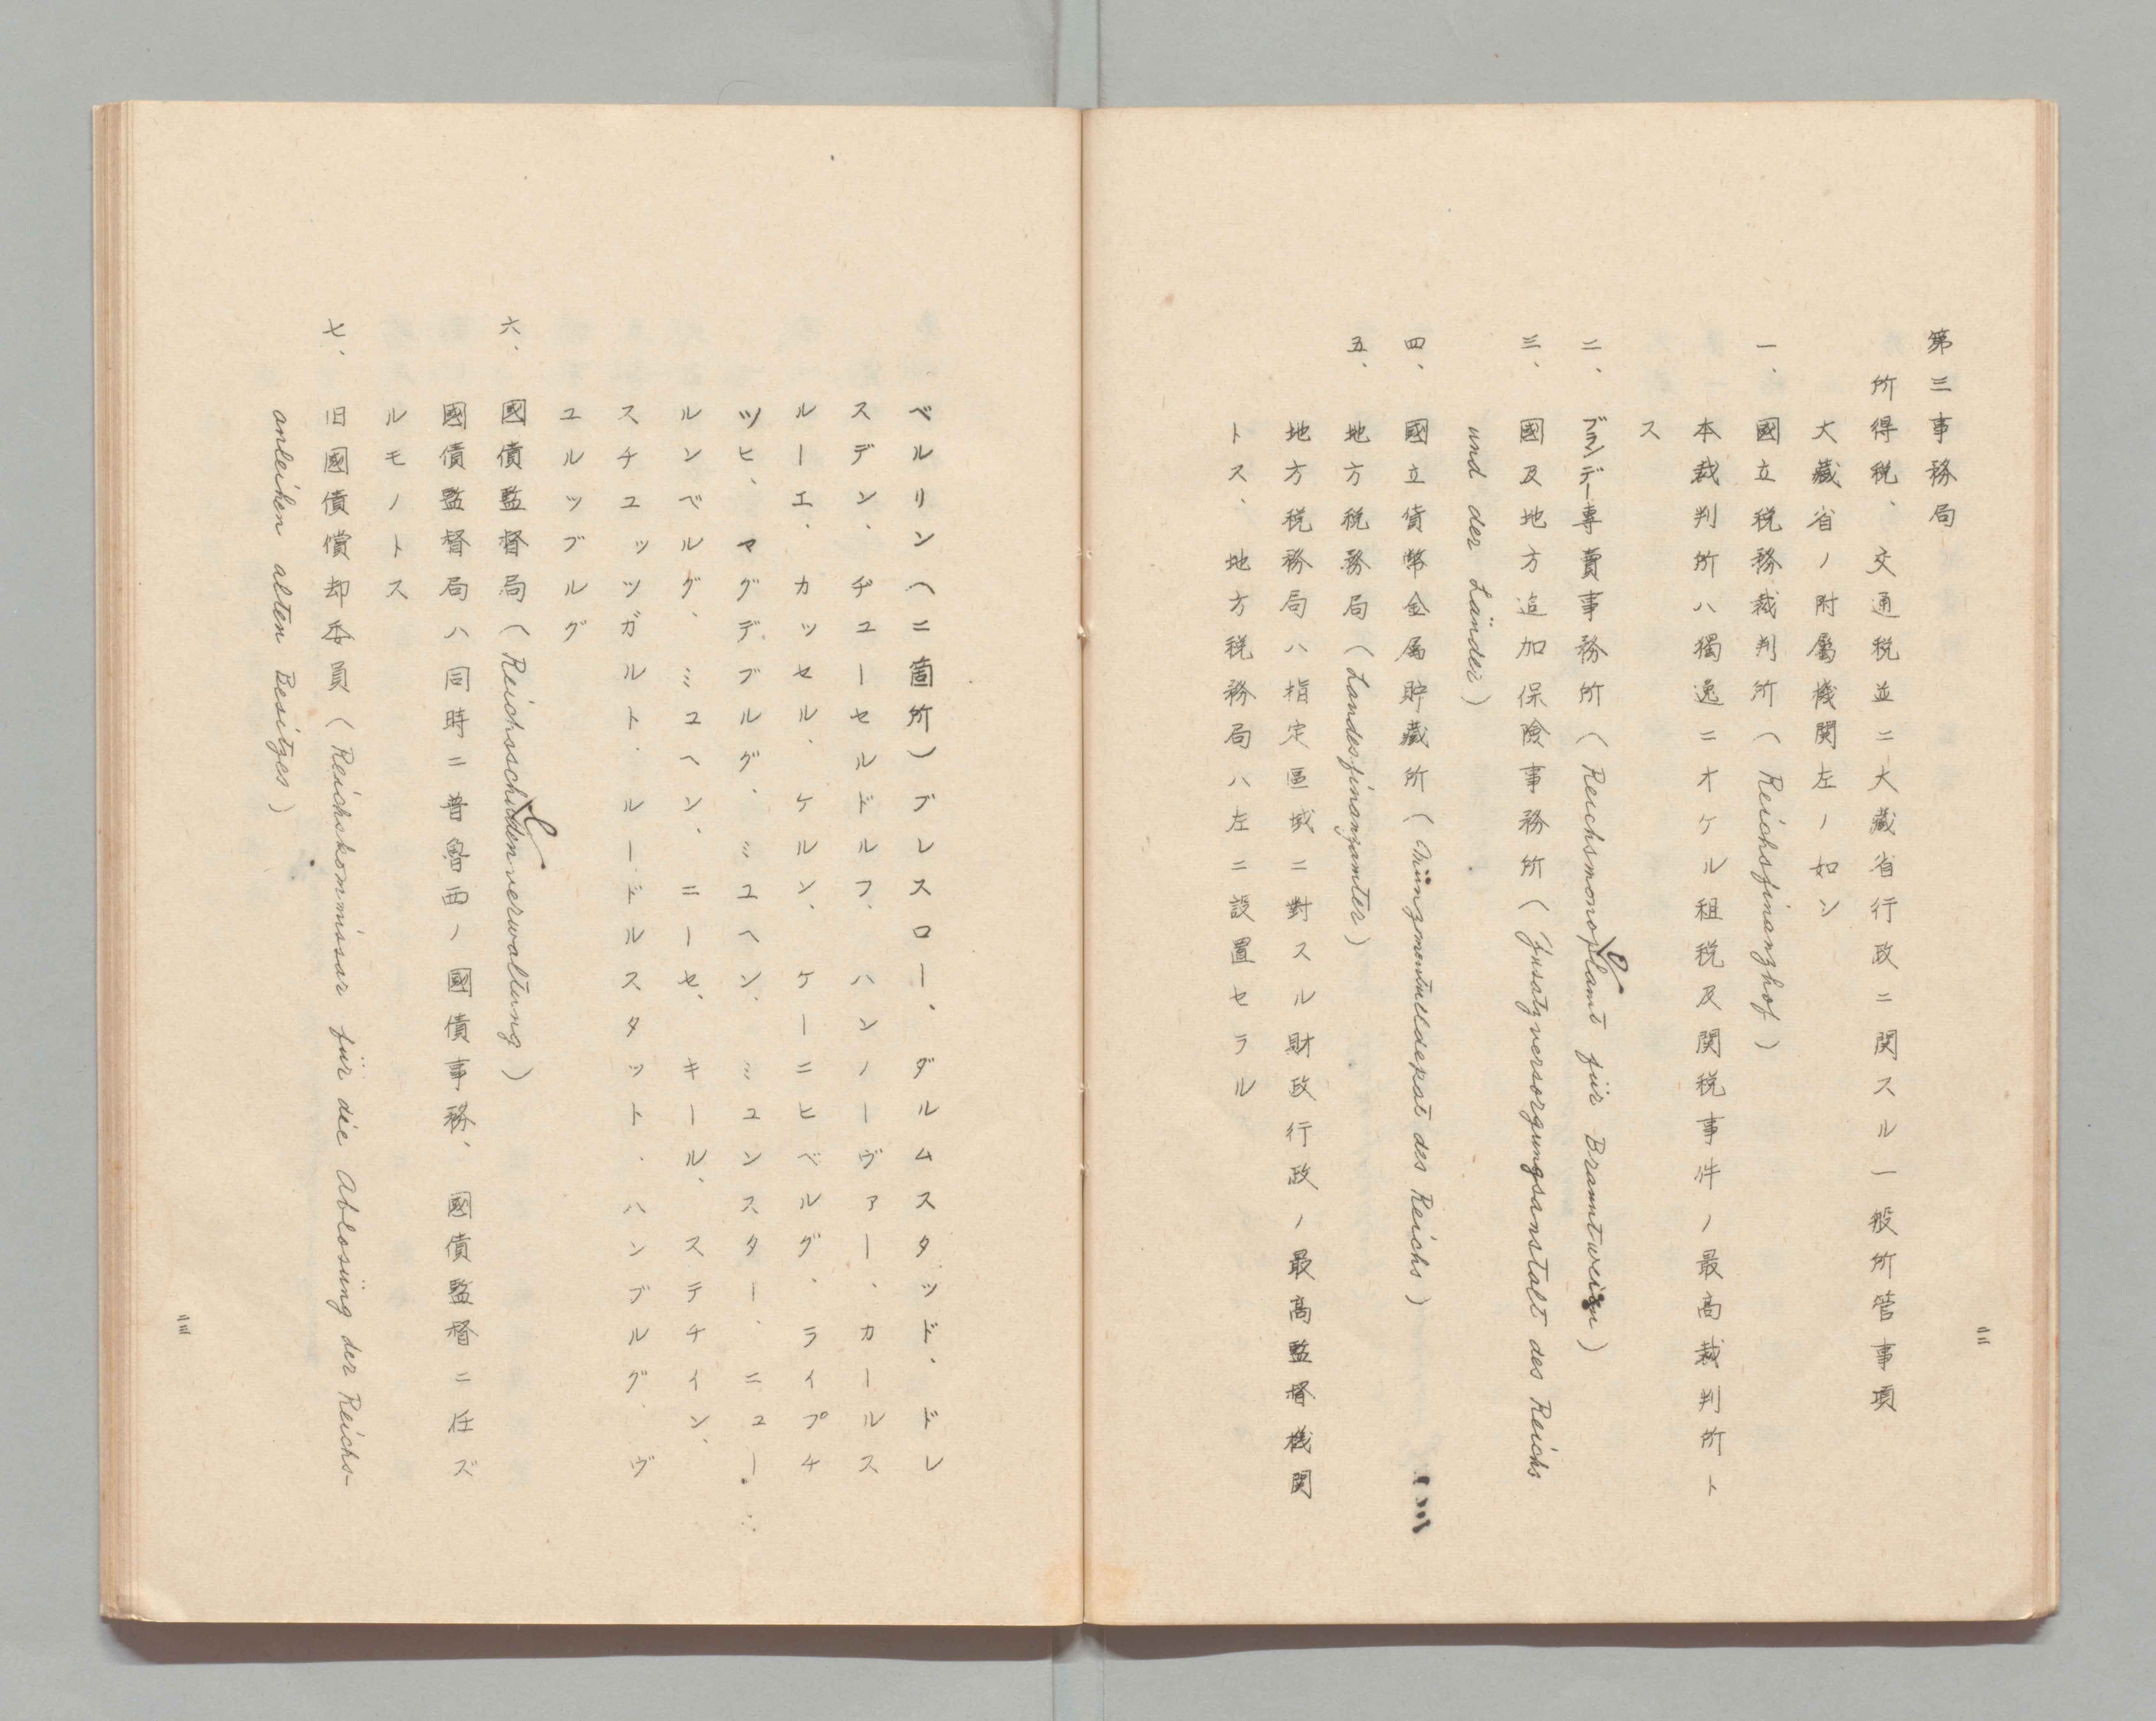 第三事務局
所得税、交通税並ニ大藏省行政ニ関スル一般所管事項
大藏省ノ附屬機関左ノ如シ
一、國立税務裁判所（Reichsfinanzhof）
本裁判所ハ獨逸ニオケル租税及関税事件ノ最高裁判所ト
ス
二、ブランデー専賣事務所（Reichsmonopolamt für Branntwein）
三、國及地方追加保險事務所（Zusatzversorgungsanstalt des Reichs
und der Länder）
四、國立貨幣金属貯藏所（Münzmetalldepot des Reichs）
五、地方税務局（Landesfinanzamter）
地方税務局ハ指定區域ニ對スル財政行政ノ最高監督機関
トス、地方税務局ハ左ニ設置セラル
二二
ベルリン（二箇所）ブレスロー、ダルムスタッド、ドレ
スデン、ヂューセルドルフ、ハンノーヴァー、カールス
ルーエ、カッセル、ケルン、ケーニヒベルグ、ライプチ
ツヒ、マグデブルグ、ミユヘン、ミユンスター、ニユー
ルンベルグ、ミユヘン、ニーセ、キール、ステチイン、
スチユツツガルト、ルードルスタット、ハンブルグ、ヴ
ユルツブルグ
六、國債監督局（Reichsschuldenverwaltung）
國債監督局ハ同時ニ普魯西ノ國債事務、國債監督ニ任ズ
ルモノトス
七、旧國債償却委員（Reichskommissar für die Ablosüng der Reichs-
anleihen alten Besitzes）
二三